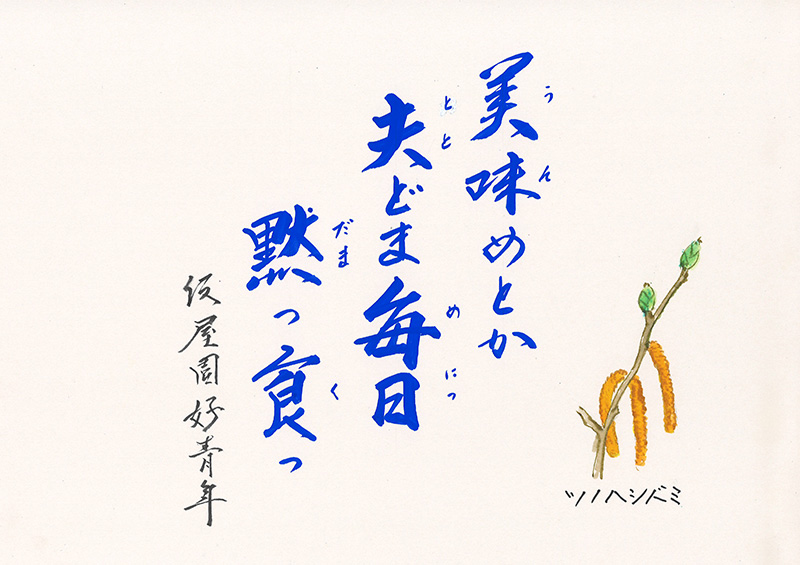 美味めとか
うん
夫どま毎日
とと
めにっ
黙っ食っ
だま
く
仮屋園好青年
ツノハシバミ